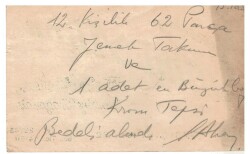 12 Kişilik 62 Parça
Yemek Takımı
ve
1 adet en Büyük
Krom Tepsi
Bedeli alındı.